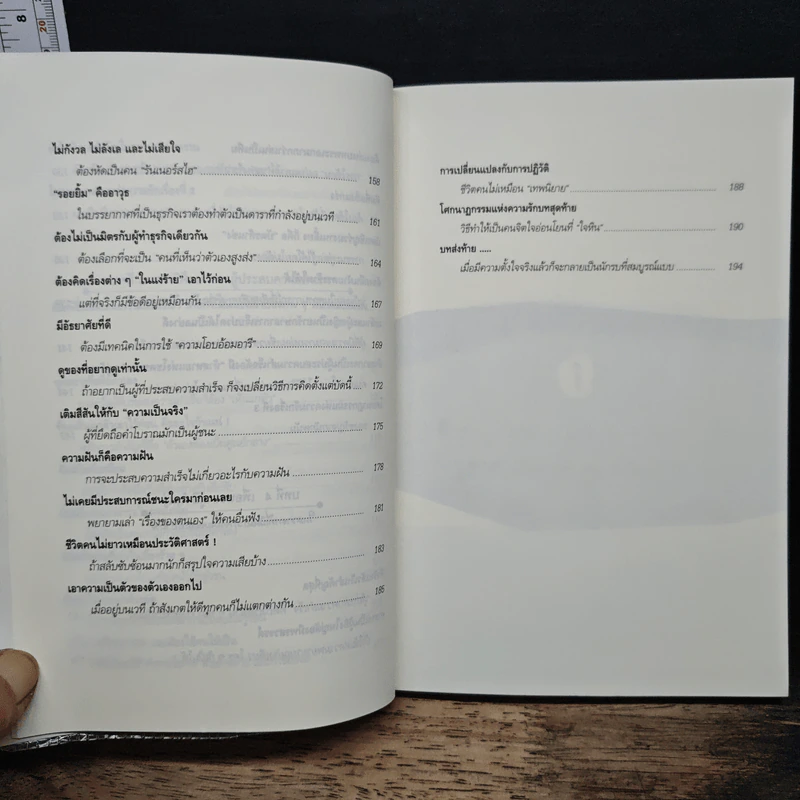 8
20
ไม่กังวล ไม่ลังเล และไม่เสียใจ
ต้องหัดเป็นคน “รันเนอร์สไฮ” 158
“รอยยิ้ม” คืออาวุธ
ในบรรยากาศที่เป็นธุรกิจเราต้องทำตัวเป็นดาราที่กำลังอยู่บนเวที 161
ต้องไม่เป็นมิตรกับผู้ทำธุรกิจเดียวกัน
ต้องเลือกที่จะเป็น “คนที่เห็นว่าตัวเองสูงส่ง” 164
ต้องคิดเรื่องต่าง ๆ “ในแง่ร้าย” เอาไว้ก่อน
แต่ที่จริงก็มีข้อดีอยู่เหมือนกัน 167
มีอัธยาศัยที่ดี
ต้องมีเทคนิคในการใช้ “ความโอบอ้อมอารี” 169
ดูของที่อยากดูเท่านั้น
ถ้าอยากเป็นผู้ที่ประสบความสำเร็จ ก็จงเปลี่ยนวิธีการคิดตั้งแต่บัดนี้ 172
เติมสีสันให้กับ “ความเป็นจริง”
ผู้ที่ยึดถือคำโบราณมักเป็นผู้ชนะ 175
ความฝันก็คือความฝัน
การจะประสบความสำเร็จไม่เกี่ยวอะไรกับความฝัน 178
ไม่เคยมีประสบการณ์ชนะใครมาก่อนเลย
พยายามเล่า “เรื่องของตนเอง” ให้คนอื่นฟัง 181
ชีวิตคนไม่ยาวเหมือนประวัติศาสตร์ !
ถ้าสลับซับซ้อนมากนักก็สรุปใจความเสียบ้าง 183
เอาความเป็นตัวของตัวเองออกไป
เมื่ออยู่บนเวที ถ้าสังเกตให้ดีทุกคนก็ไม่แตกต่างกัน 185
การเปลี่ยนแปลงกับการปฏิวัติ
ชีวิตคนไม่เหมือน “เทพนิยาย” 188
โศกนาฏกรรมแห่งความรักบทสุดท้าย
วิธีทำให้เป็นคนจิตใจอ่อนโยนที่ “ใจหิน” 190
บทส่งท้าย .....
เมื่อมีความตั้งใจจริงแล้วก็จะกลายเป็นนักรบที่สมบูรณ์แบบ 194